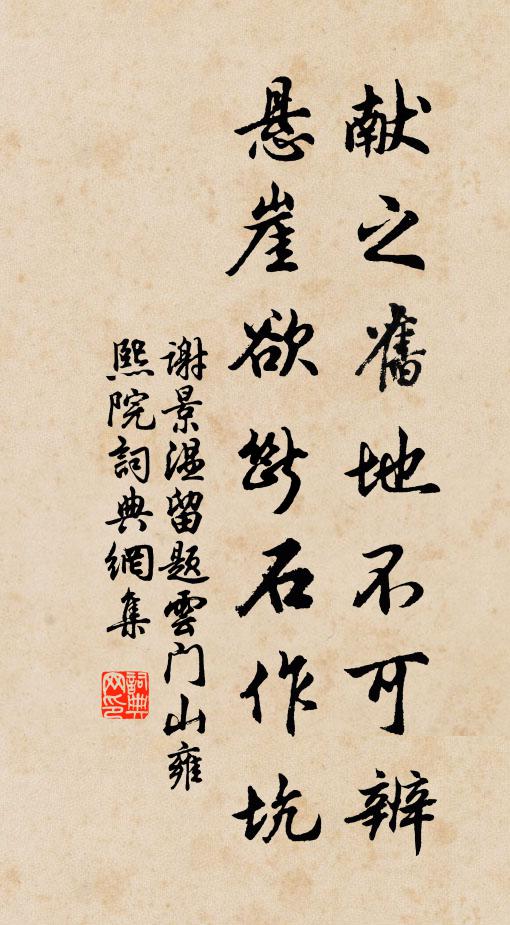 献之舊地不可辨
悬崖欲斷石作坑
谢景温留题雲门山雍
熙院詞典網集
詞典網印